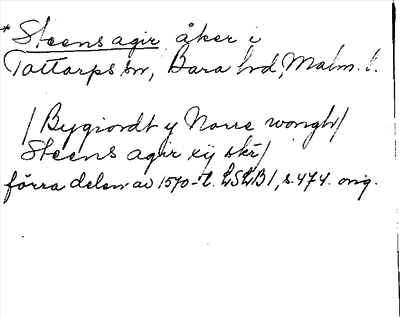 *Steens agir åker i
Tottarps sn, Bara hd, Malm. l.
/ Bygiordt y Norre wongh/
Steens agir xij skr/
förra delen av 1570-t. LSLB1, s. 474. orig.